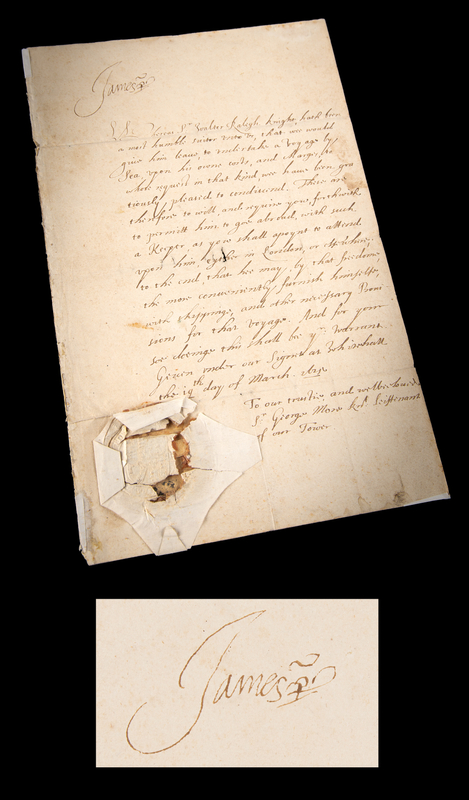 James R
Sr Walter Ralegh, knight, hath been
a most humble suitor unto us, that wee would
give him leave, to undertake a voyage by
Sea, upon his owne costs, and charges, to
whose request in that kind, wee have been gra
tiously pleased to condiscend. These are
therefore to will, and require you, forthwith
to permitt him to goe abroad, with such
a Keeper, as you shall apoynt to attend
upon him, eyther in London, or elsewhere;
to the end, that hee may, by that freedome,
the more conveniently furnish himselfe,
with shippinge, and other necessary Provi
sions for that voyage. And for your
so doeinge this shall be yr warrant.
Given under our Signet at Whitehall
the 19th day of March.
To our trustie and welbeloved
Sr George More Knt Leiftenant
of our Tower
James R